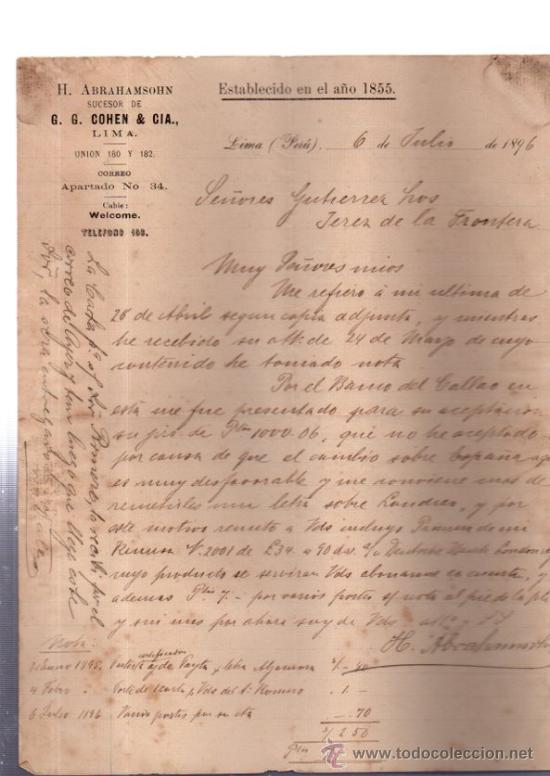 H. ABRAHAMSOHN
SUCESOR DE
G. G. COHEN & CIA.,
LIMA.
UNION 180 Y 182.
CORREO
Apartado No 34.
Cable:
Welcome.
TELEFONO 169.
Establecido en el año 1855.
Lima (Perú). 6 de Julio de 1896
Señores Gutierrez hos
Jerez de la Frontera
Muy Señores mios
Me refiero á mi ultima de
28 de Abril segun copia adjunta, y mientras
he recibido su att: de 24 de Marzo de cuyo
contenido he tomado nota
Por el Banco del Callao en
esta me fue presentado para su aceptacion
su giro de Ptas 1000.06, que no he aceptado
por causa de que el cambio sobre España
es muy desfavorable y me conviene mas de
remeterles una letra sobre Londres, y por
este motivo remeto a Vds incluyo Primera de mi
Remesa N. 2001 de £34. a 90 d/v. Deutsche Bank London
cuyo producto se serviran Vds abonarme en cuenta, y
ademas Ptas 7.- por varios portes s/ nota al pie de la
y sin mas por ahora soy de Vds
H. Abrahamsohn
La Carta pa el Sor Romero, la recibi por el
correo de ayer y tan luego que llega este
Sor, la sera entregada
Nota:
certificados
1895.
4 Febro " 1.-
6 Julio 1896 Varios portes por su cta -.70
2.50
Ptas
www.todocoleccion.net